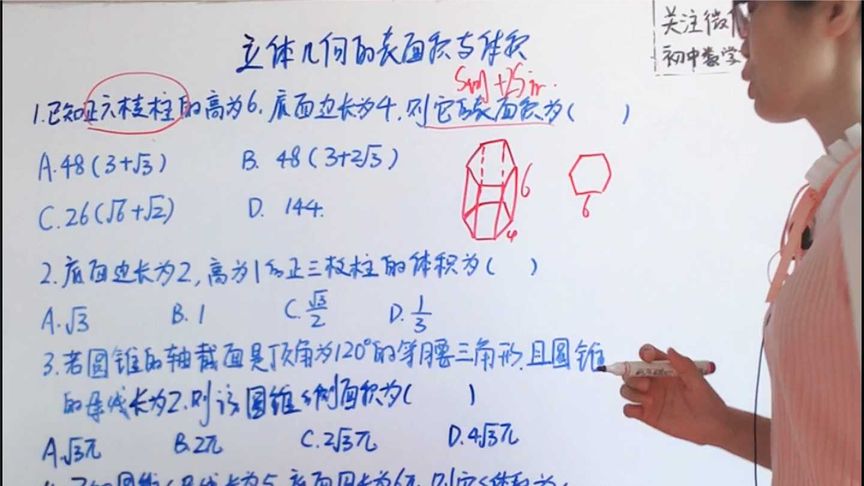 立体几何的表面积与体积
关注微
初中数学
S侧+2S
1.已知正六棱柱的高为6.底面边长为4.则它的表面积为( )
A.48(3+√3) B. 48(3+2√3)
C.26(√6+√2) D. 144.
6
4
6
2.底面边长为2,高为1的正三棱柱的体积为( )
A.√3 B.1 C.√3/2 D.1/3
3.若圆锥的轴截面是顶角为120°的等腰三角形.且圆锥
的母线长为2.则该圆锥的侧面积为( )
A.√3π B.2π C.2√3π D.4√3π